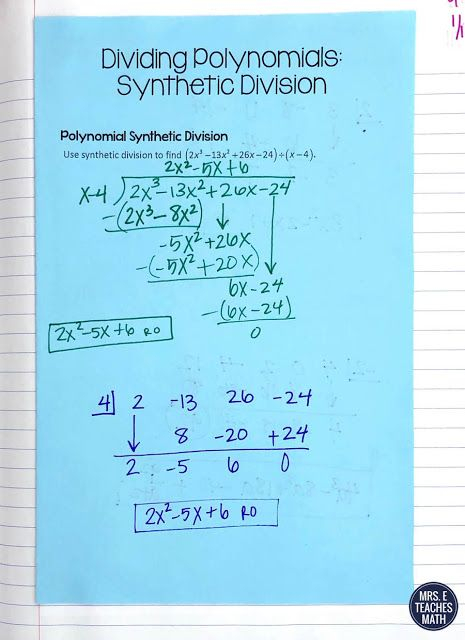 Dividing Polynomials:
Synthetic Division
Polynomial Synthetic Division
Use synthetic division to find (2x³ −13x² +26x −24) ÷ (x −4).
2x²-5x+6
x-4 ) 2x³-13x²+26x-24
-(2x³-8x²)
-5x²+26x
-(-5x²+20x)
6x-24
-(6x-24)
0
2x²-5x+6 R0
4| 2 -13 26 -24
8 -20 +24
2 -5 6 0
2x²-5x+6 R0
MRS. E
TEACHES
MATH